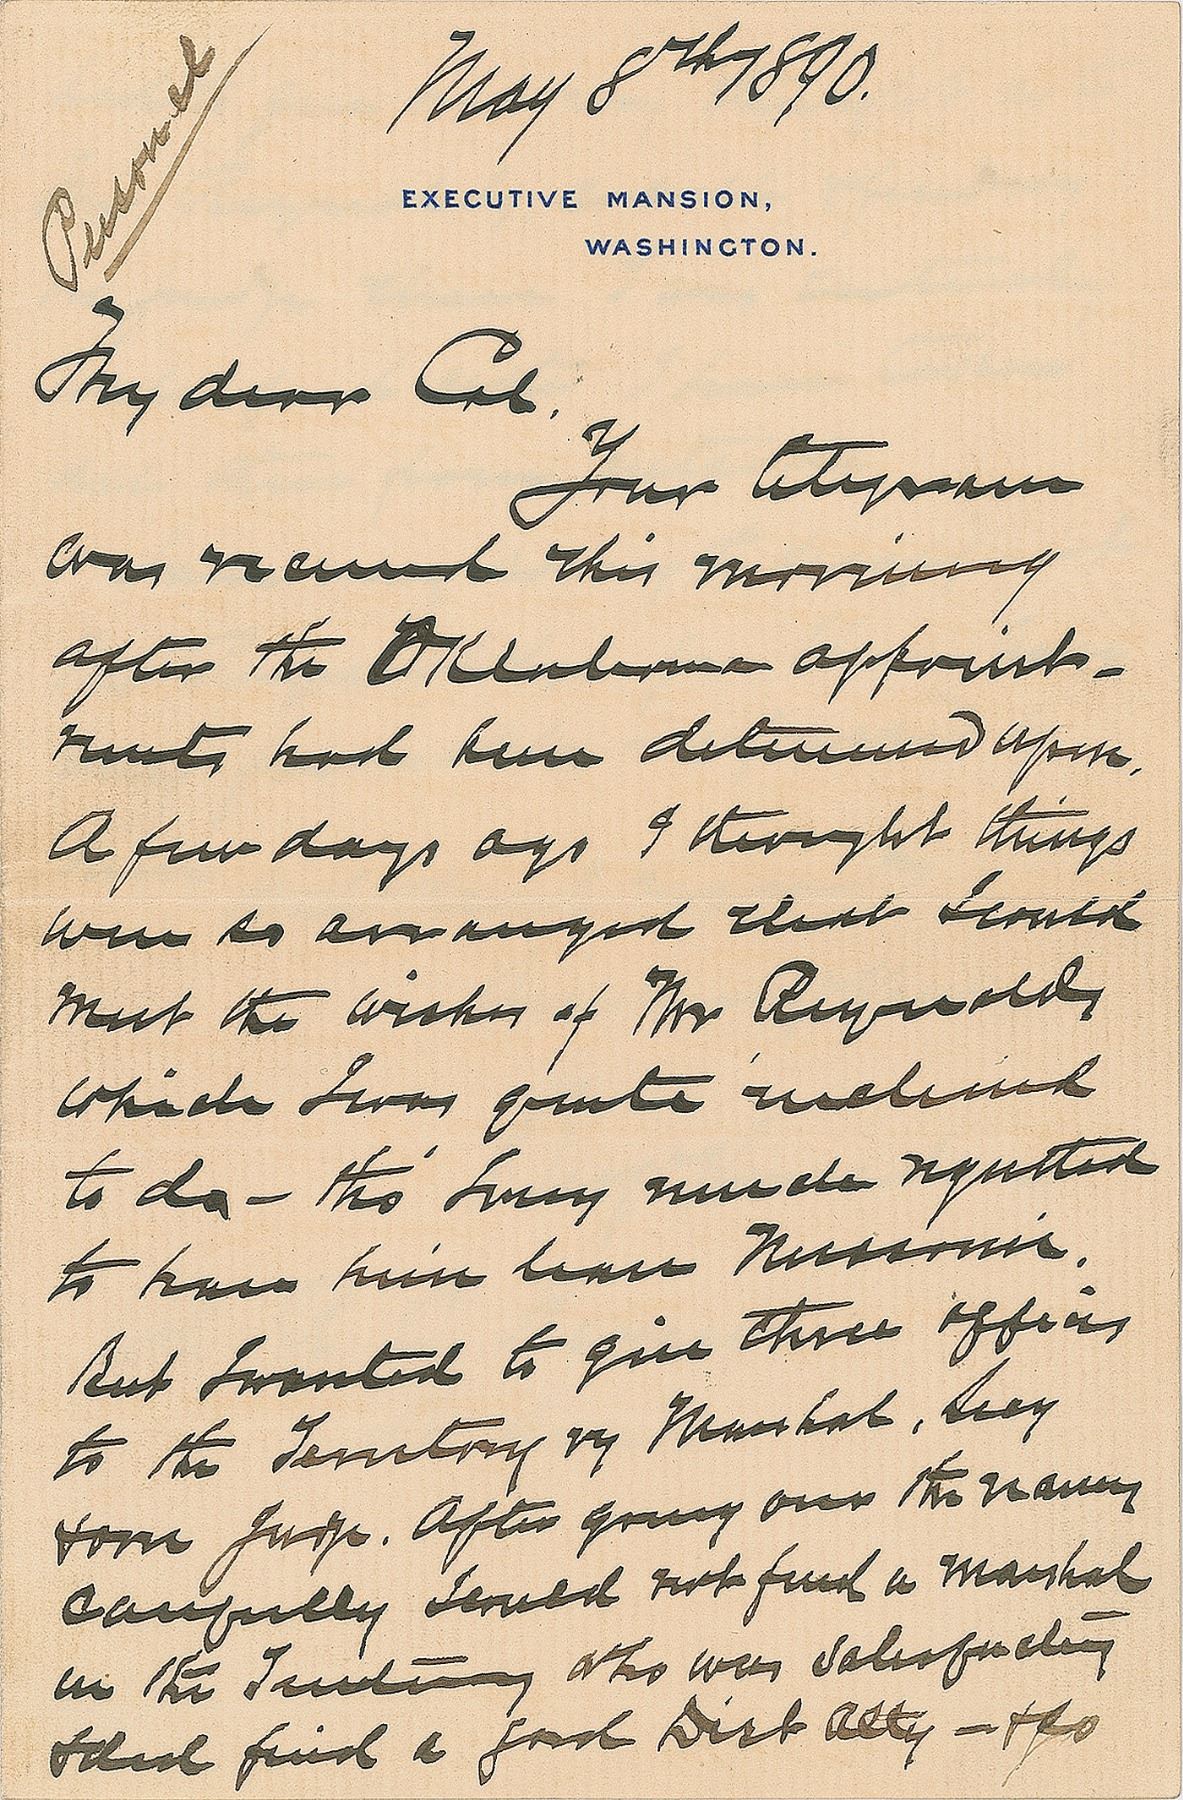 Personal
May 8th 1890.
EXECUTIVE MANSION,
WASHINGTON.
My dear Col.
Your telegram
was received this morning
after the Oklahoma appoint-
ments had been determined upon.
A few days ago I thought things
were so arranged that I could
meet the wishes of Mr Reynolds
which I was quite inclined
to do - tho' I very much regretted
to have him leave Missouri.
But I wanted to give three offices
to the Territory vz Marshal, Secy
& one Judge. After going over the names
carefully I could not find a marshal
in the Territory who was satisfactory
I did find a good Dist Atty - & so